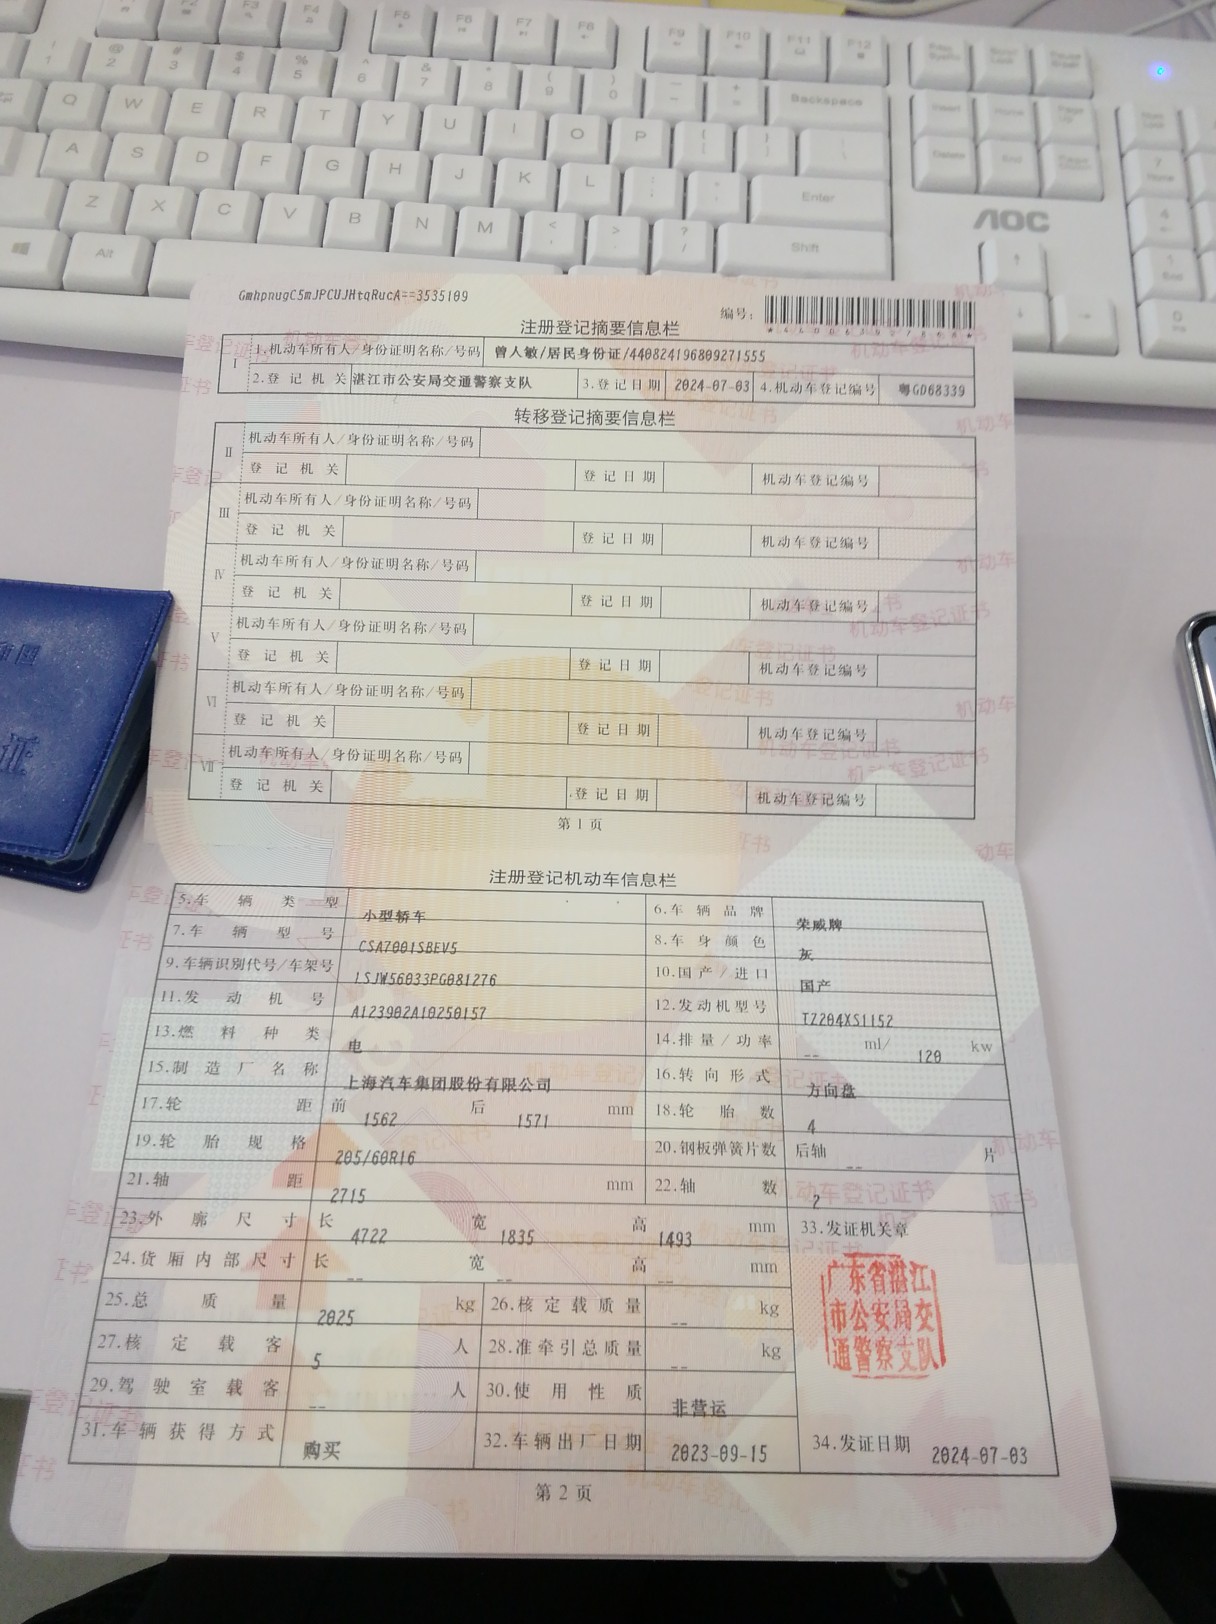 F5 F6 F7 F8 F9 F10 F11 F12
Q W E R T Y U I O P
Backspace
A S D F G H J K L
Enter
Z X C V B N M
Shift
Alt
AOC
GmhpnugC5mJPCUJHtqRucA==3535109
编号:
注册登记摘要信息栏
I 1.机动车所有人/身份证明名称/号码 曾人敏/居民身份证/440824196809271555
2.登记机关 湛江市公安局交通警察支队 3.登记日期 2024-07-03 4.机动车登记编号 粤GD68339
转移登记摘要信息栏
II 机动车所有人/身份证明名称/号码
登记机关 登记日期 机动车登记编号
III 机动车所有人/身份证明名称/号码
登记机关 登记日期 机动车登记编号
IV 机动车所有人/身份证明名称/号码
登记机关 登记日期 机动车登记编号
V 机动车所有人/身份证明名称/号码
登记机关 登记日期 机动车登记编号
VI 机动车所有人/身份证明名称/号码
登记机关 登记日期 机动车登记编号
VII 机动车所有人/身份证明名称/号码
登记机关 登记日期 机动车登记编号
第1页
注册登记机动车信息栏
5.车辆类型 小型轿车 6.车辆品牌 荣威牌
7.车辆型号 CSA7001SBEV5 8.车身颜色 灰
9.车辆识别代号/车架号 LSJW56033PG081276 10.国产/进口 国产
11.发动机号 A123902A10250157 12.发动机型号 TZ204XS1152
13.燃料种类 电 14.排量/功率 -- ml/ 120 kw
15.制造厂名称 上海汽车集团股份有限公司 16.转向形式 方向盘
17.轮距 前 1562 后 1571 mm 18.轮胎数 4
19.轮胎规格 205/60R16 20.钢板弹簧片数 后轴 -- 片
21.轴距 2715 mm 22.轴数 2
23.外廓尺寸 长 4722 宽 1835 高 1493 mm 33.发证机关章
24.货厢内部尺寸 长 -- 宽 -- 高 -- mm
25.总质量 2025 kg 26.核定载质量 -- kg
27.核定载客 5 人 28.准牵引总质量 -- kg
29.驾驶室载客 -- 人 30.使用性质 非营运
31.车辆获得方式 购买 32.车辆出厂日期 2023-09-15 34.发证日期 2024-07-03
广东省湛江
市公安局交
通警察支队
第2页
证